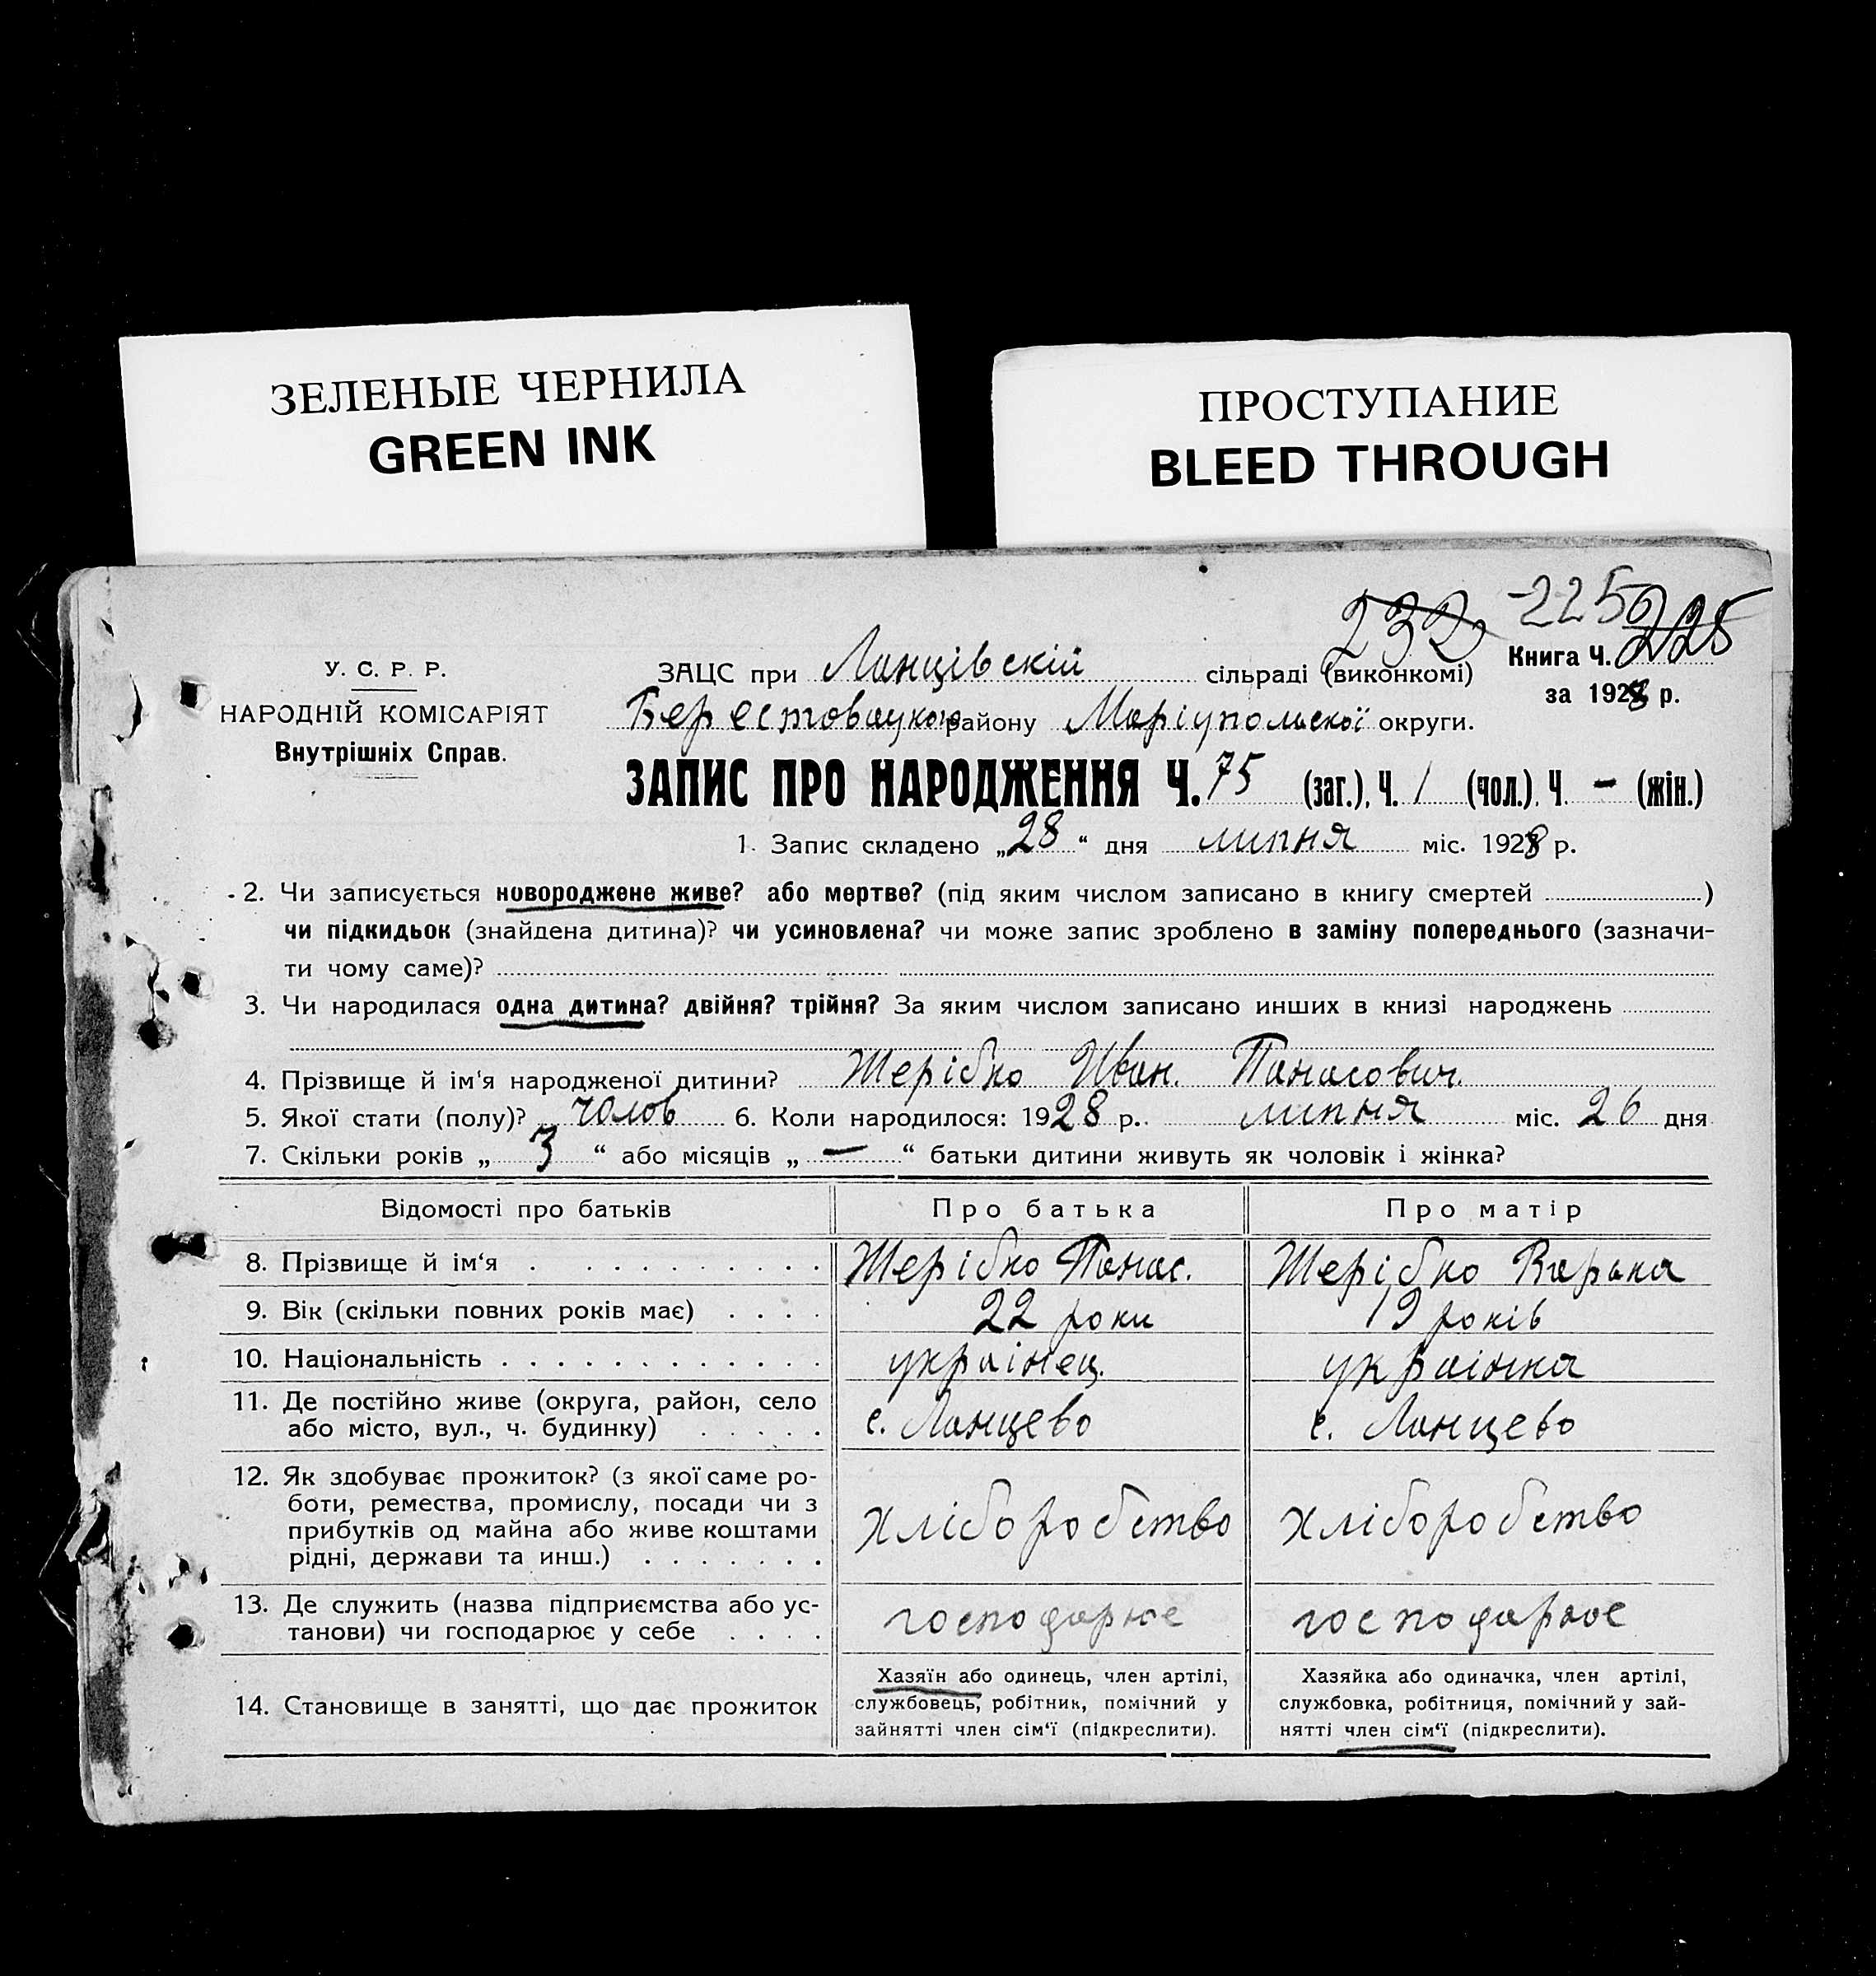 ЗЕЛЕНЫЕ ЧЕРНИЛА
GREEN INK
ПРОСТУПАНИЕ
BLEED THROUGH
232 -225 225
У. С. Р. Р.
НАРОДНІЙ КОМІСАРІЯТ
Внутрішніх Справ.
ЗАЦС при Ланцівскій сільраді (виконкомі)
Книга Ч.
за 1928 р.
району Маріупольскої округи.
ЗАПИС ПРО НАРОДЖЕННЯ Ч. 75 (заг.), Ч. 1 (чол.). Ч. - (жін.)
1. Запис складено „28“ дня липня міс. 1928 р.
2. Чи записується новороджене живе? або мертве? (під яким числом записано в книгу смертей )
чи підкидьок (знайдена дитина)? чи усиновлена? чи може запис зроблено в заміну попереднього (зазначи-
ти чому саме)?
3. Чи народилася одна дитина? двійня? трійня? За яким числом записано инших в книзі народжень
4. Прізвище й ім'я народженої дитини? Жерібко Иван. Панасович.
5. Якої стати (полу)? чолов 6. Коли народилося: 1928 р. липня міс. 26 дня
7. Скільки років „ 3 “ або місяців „ — “ батьки дитини живуть як чоловік і жінка?
Відомості про батьків Про батька Про матір
8. Прізвище й ім‘я Жерібко Панас. Жерібко Варька
9. Вік (скільки повних років має) 22 роки 19 років
10. Національність українец. українка
11. Де постійно живе (округа, район, село
або місто, вул., ч. будинку) с. Ланцево с. Ланцево
12. Як здобуває прожиток? (з якої саме ро-
боти, ремества, промислу, посади чи з
прибутків од майна або живе коштами
рідні, держави та инш.)
хліборобство хліборобство
13. Де служить (назва підприємства або ус-
танови) чи господарює у себе
господарює господарює
14. Становище в занятті, що дає прожиток
Хазяїн або одинець, член артілі,
службовець, робітник, помічний у
зайнятті член сім‘ї (підкреслити).
Хазяйка або одиначка, член артілі,
службовка, робітниця, помічний у зай-
нятті член сім‘ї (підкреслити).